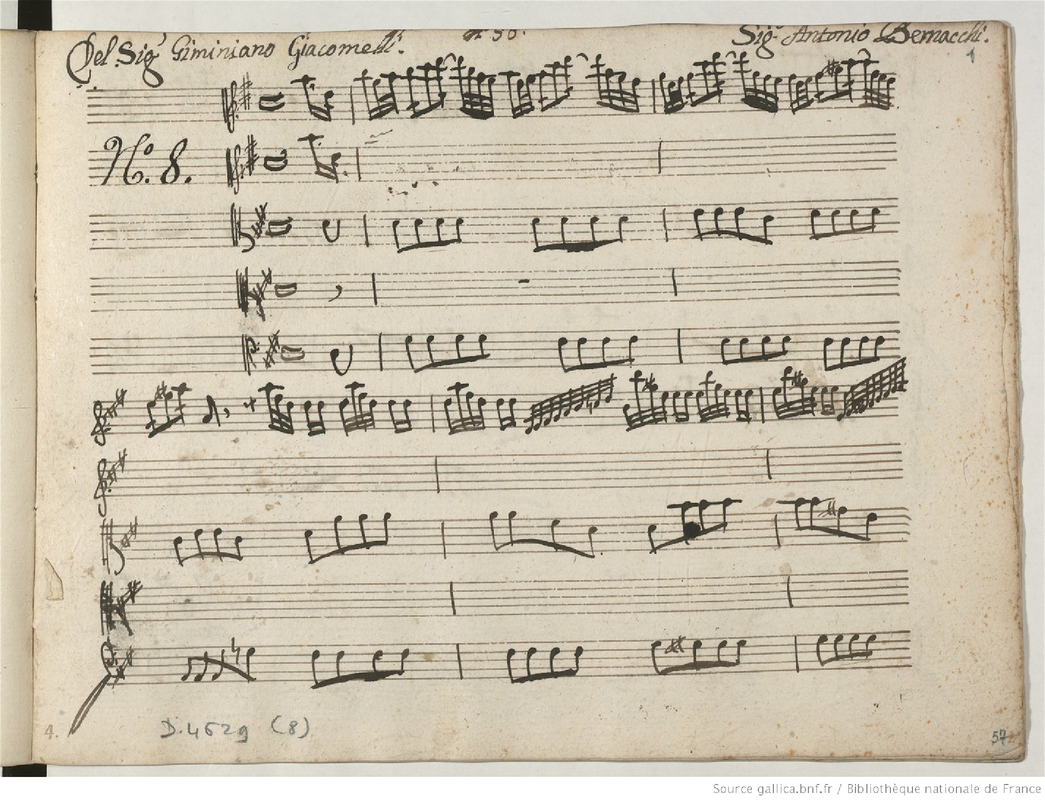 Del Sigr Giminiano Giacomelli.
Sigr Antonio Bernacchi.
1
No. 8.
4.
D. 4629 (8)
57
Source gallica.bnf.fr / Bibliothèque nationale de France